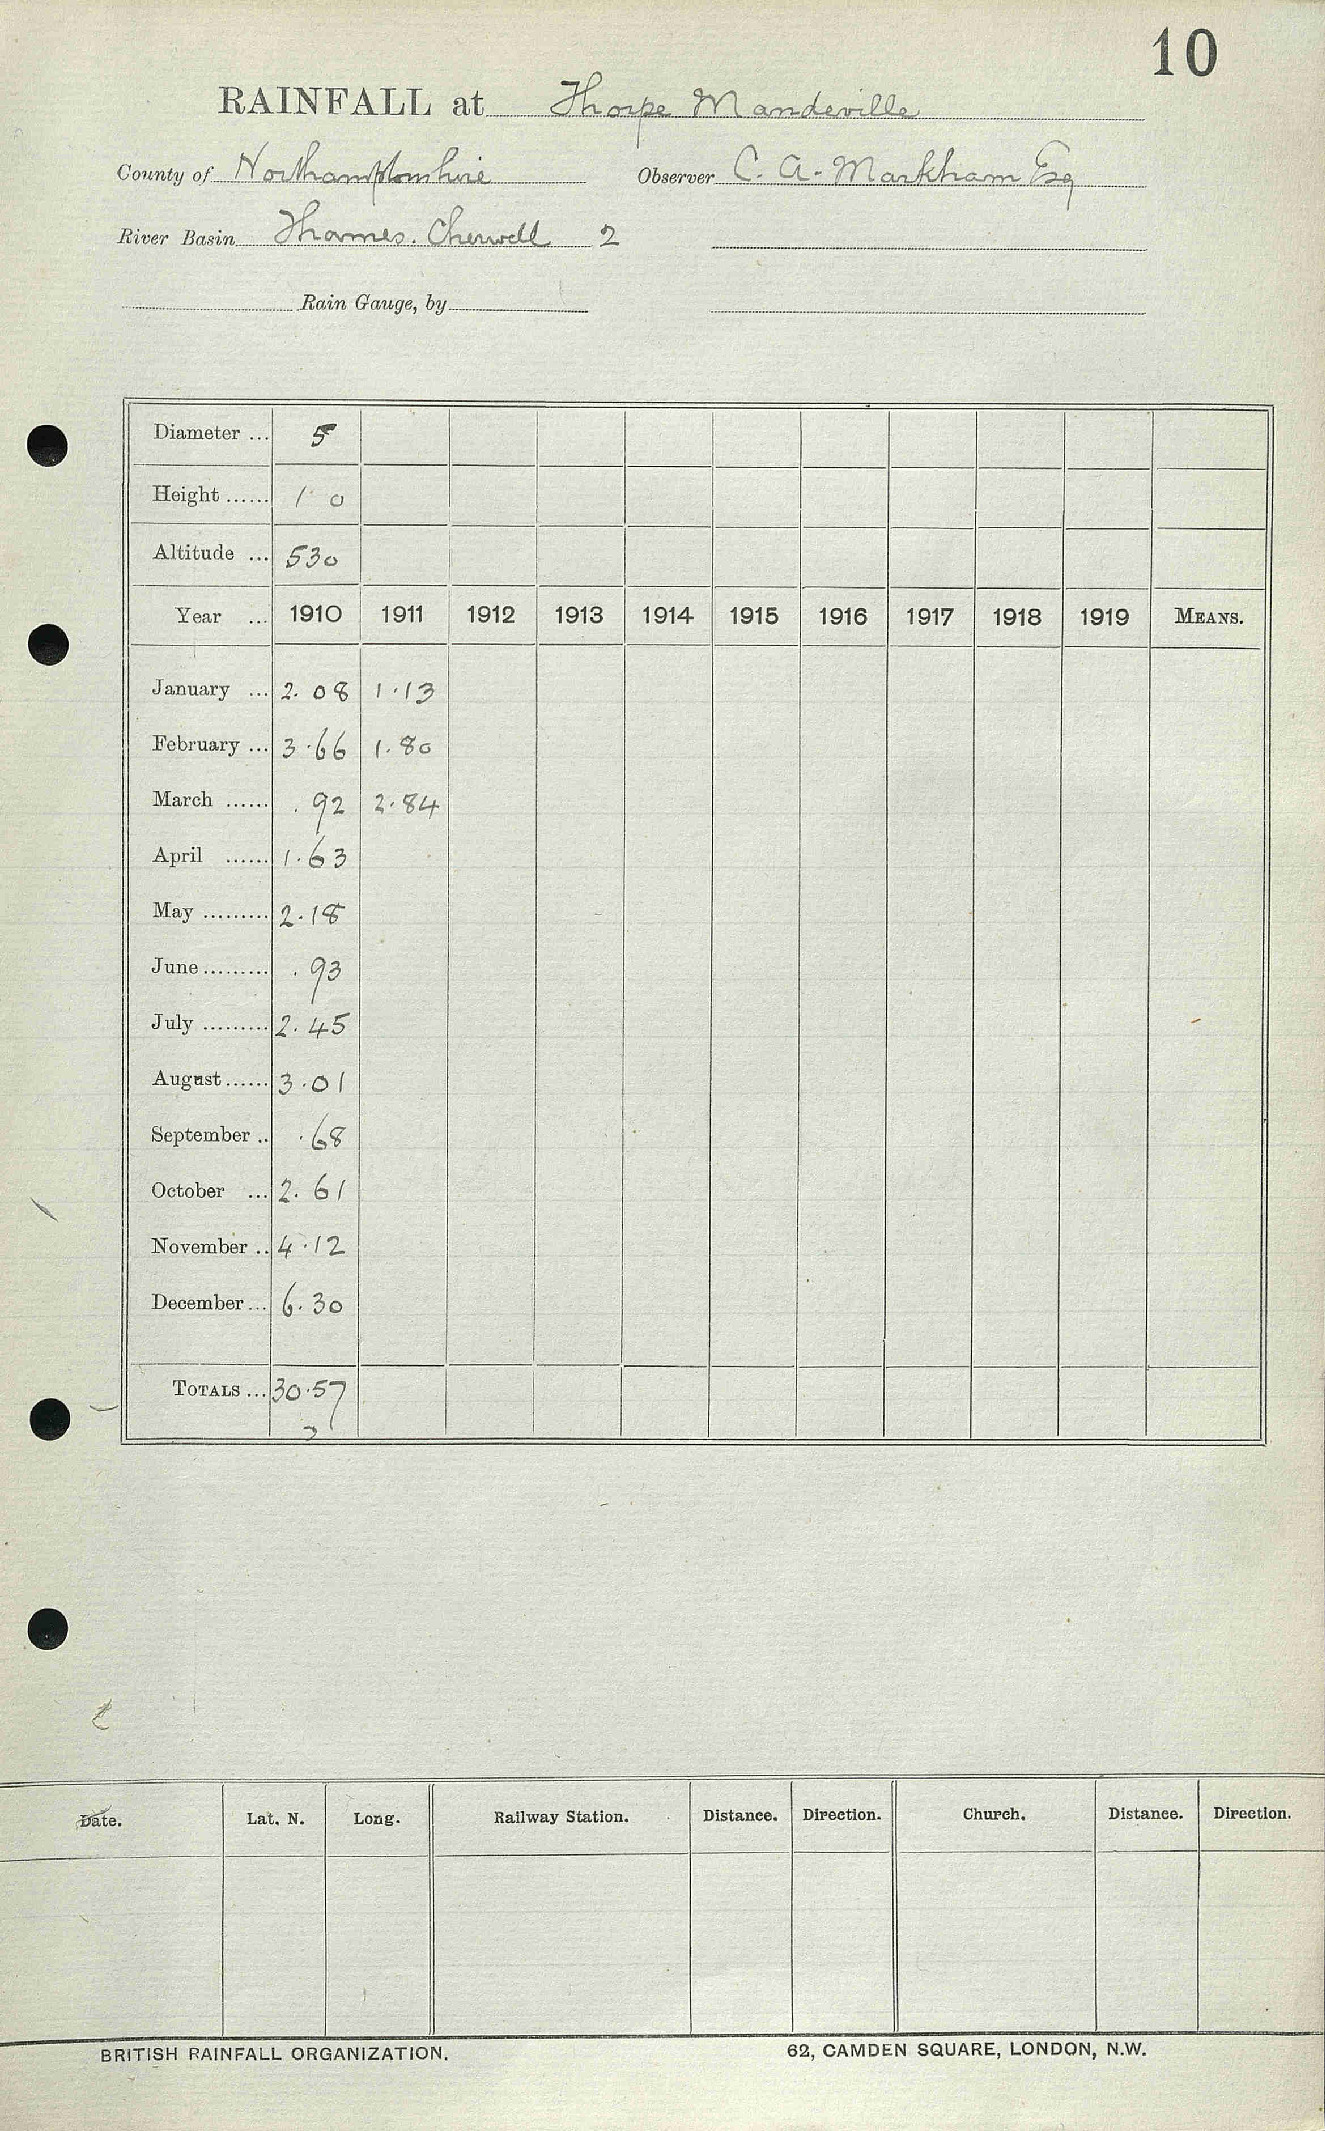 10
RAINFALL at Thorpe Mandeville
County of Northamptonshire Observer C. A. Markham Esq
River Basin Thames. Cherwell 2
Rain Gauge, by
Diameter ... 5
Height ...... 1 0
Altitude ... 530
Year ... 1910 1911 1912 1913 1914 1915 1916 1917 1918 1919 MEANS.
January ... 2.08 1.13
February ... 3.66 1.80
March ...... .92 2.84
April ...... 1.63
May ......... 2.18
June ......... .93
July ......... 2.45
August ...... 3.01
September .. .68
October ... 2.61
November .. 4.12
December ... 6.30
TOTALS ... 30.57
Date. Lat. N. Long. Railway Station. Distance. Direction. Church. Distance. Direction.
BRITISH RAINFALL ORGANIZATION. 62, CAMDEN SQUARE, LONDON, N.W.